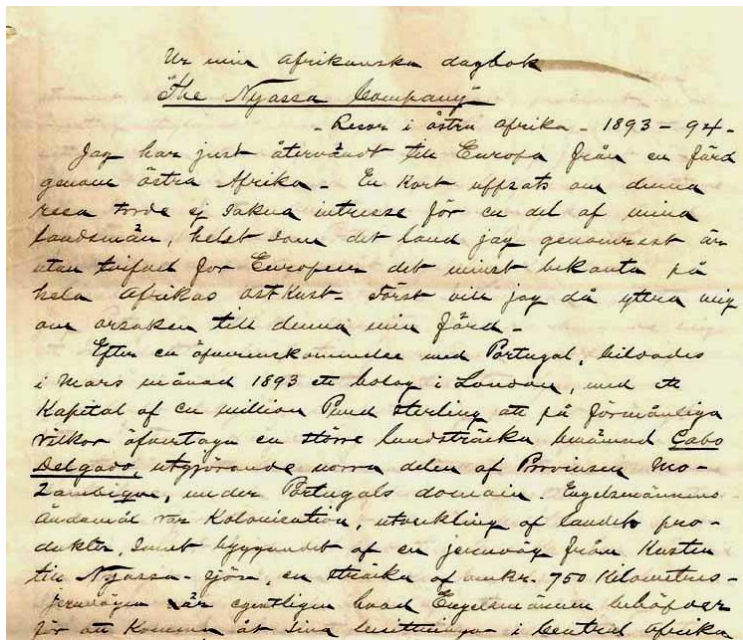 Ur min afrikanska dagbok
"The Nyassa Company"
- Resor i östra afrika - 1893 - 94 -
Jag har just återvändt till Europa från en färd
genom östra Afrika - En kort uppsats om denna
resa torde ej sakna intresse för en del af mina
landsmän, helst som det land jag genomrest är
utan tvifvel för Europeer det minst bekanta på
hela Afrikas ostkust - Först vill jag då yttra mig
om orsaken till denna min färd -
Efter en öfverenskommelse med Portugal, bildades
i Mars månad 1893 ett bolag i London, med ett
Kapital af en million Pund sterling att på förmånliga
vilkor öfvertaga en större landsträcka benämnd Cabo
Delgado, utgjörande norra delen af Provinsen Mo-
zambique, under Portugals domain. Engelsmännens
ändamål var Kolonisation, utveckling af landets pro-
dukter, samt byggandet af en jernväg från Kusten
till Nyassa-sjön, en sträcka af omkr. 750 Kilometres -
Jernvägen är egentligen hvad Engelsmännen behöfver
för att komma åt sina besittningar i Central Afrika